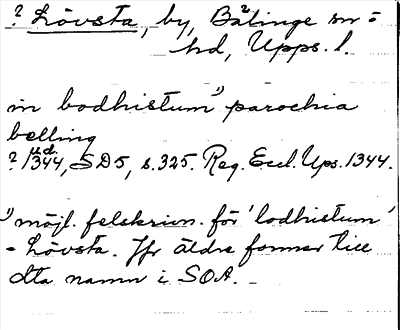 ? Lövsta, by, Bälinge sn o
hd, Upps. l.
in bodhistum" parochia
belling
? u.d. 1344, SD5, s. 325. Reg. Eccl. Ups. 1344.
") möjl. felskrivn. för 'lodhistum'
= Lövsta. Jfr äldre former till
dta namn i SOA.